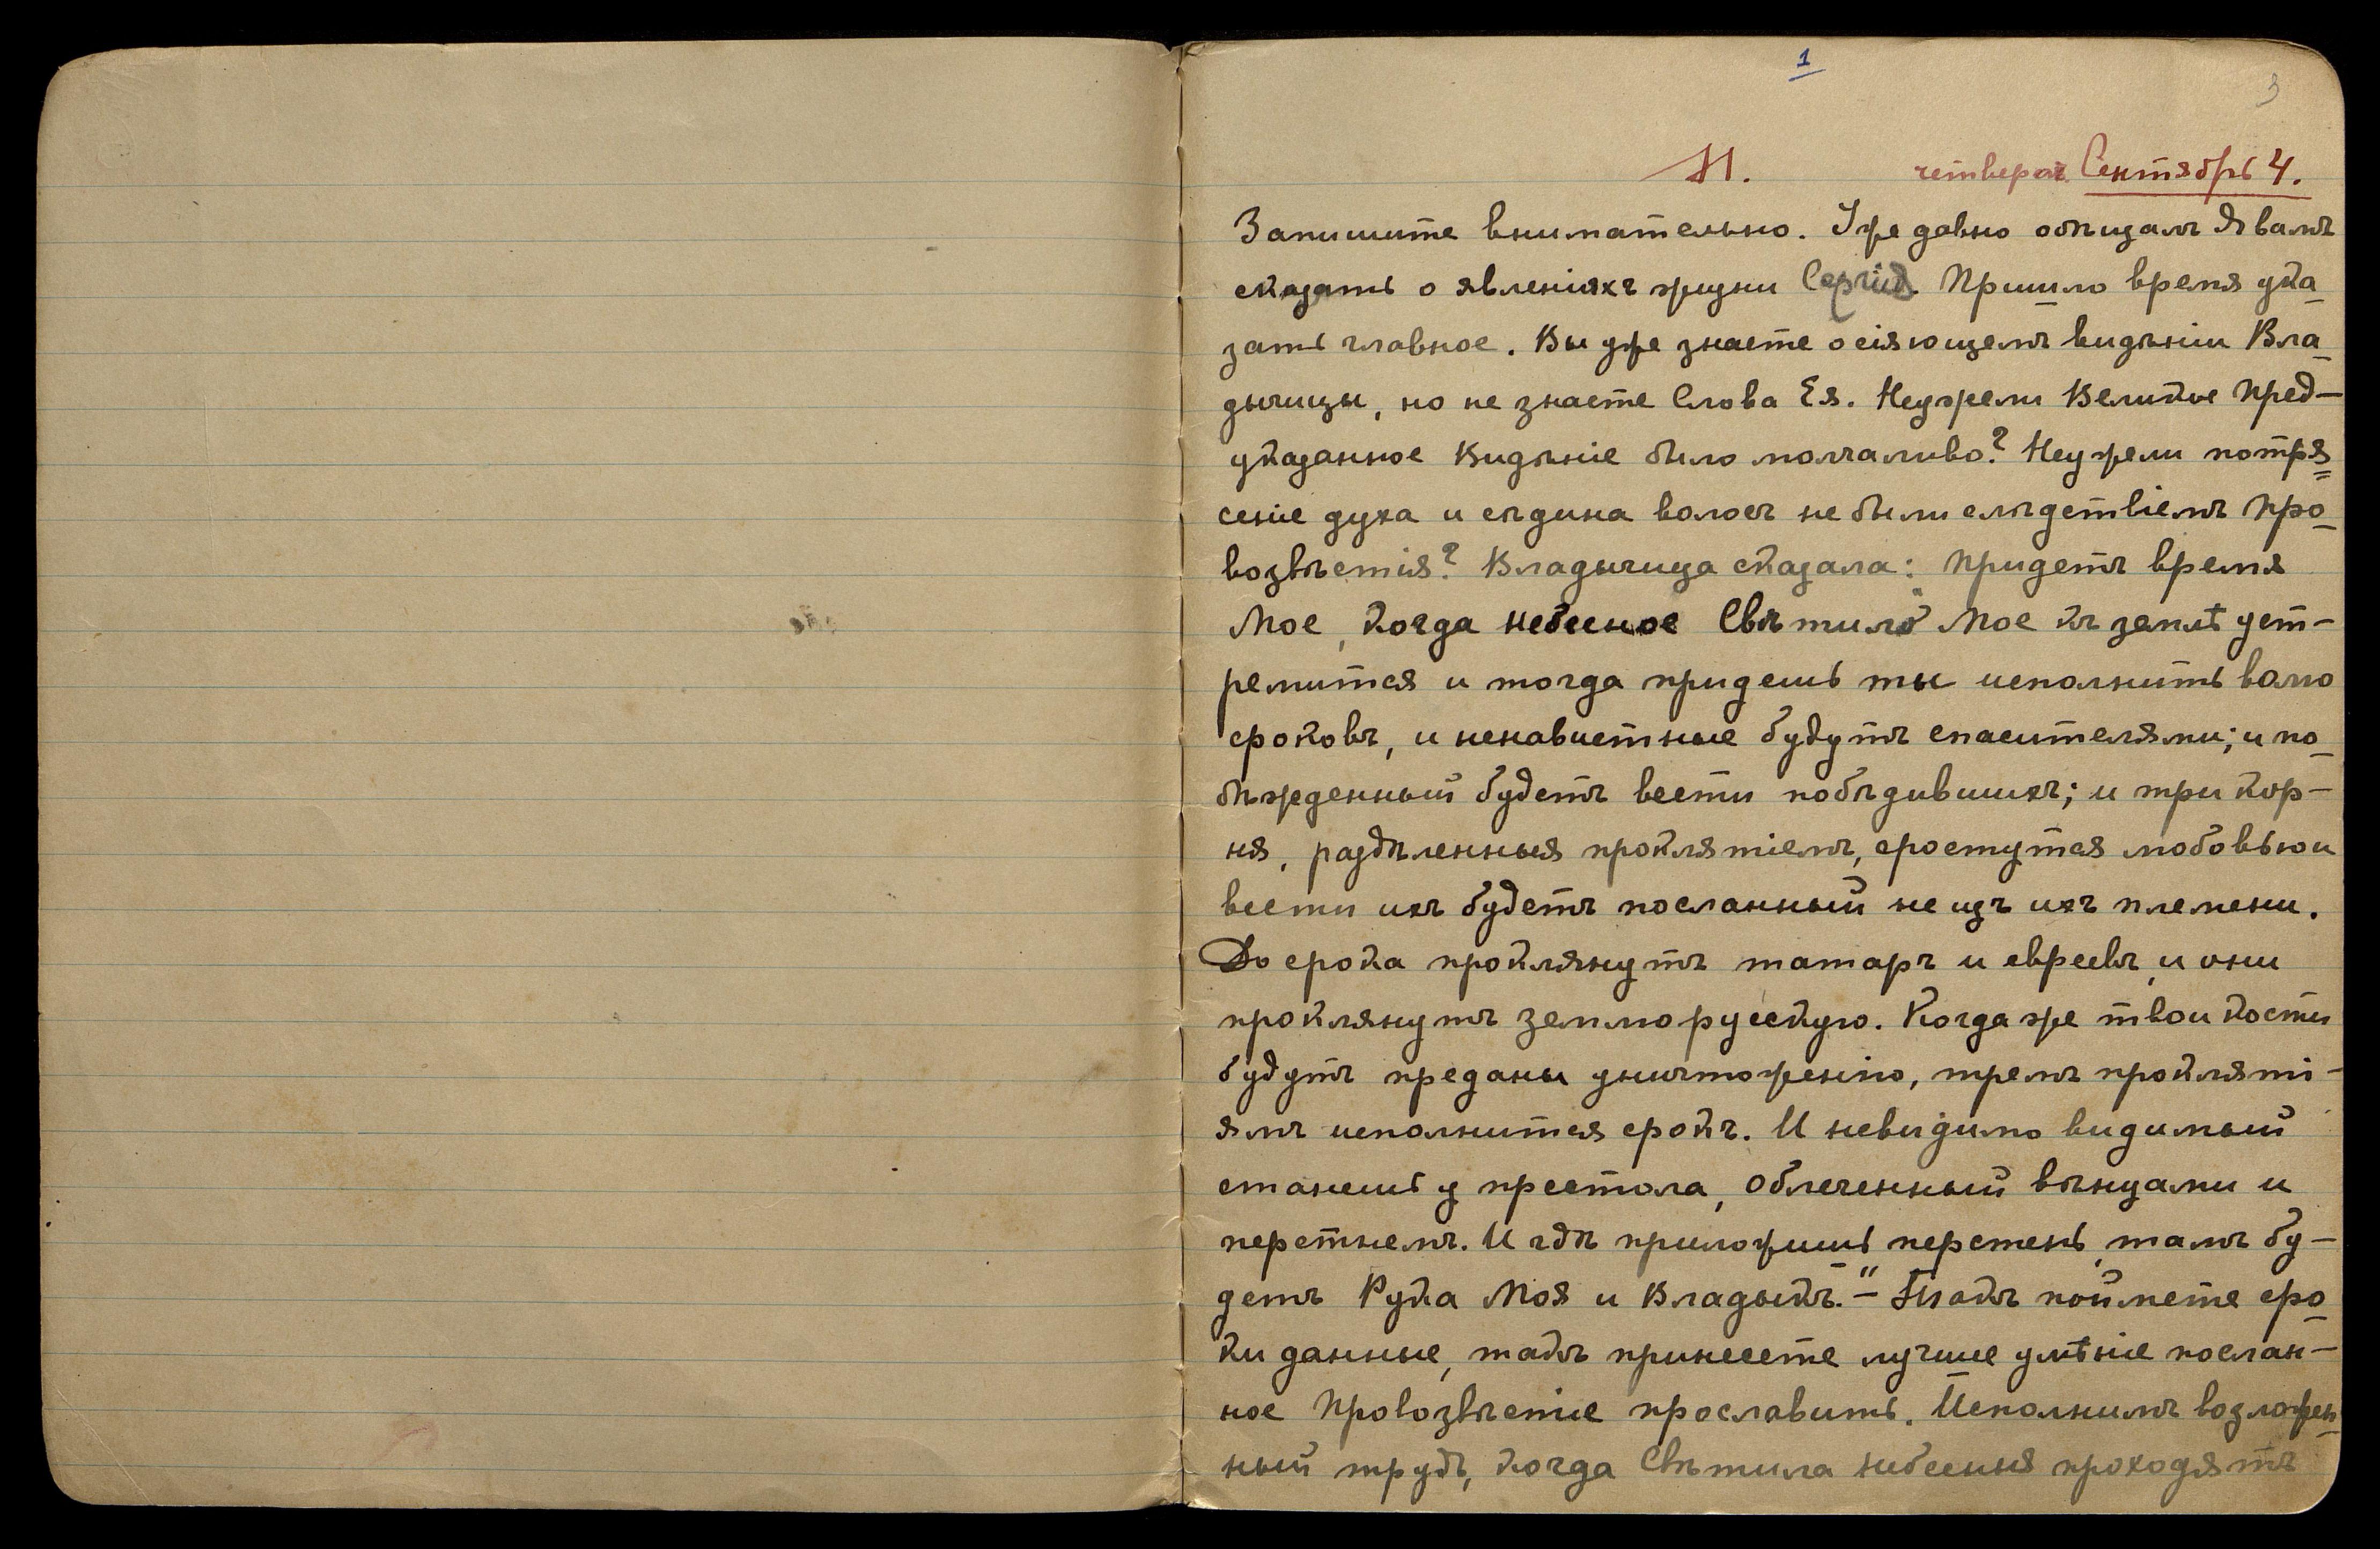 1
3
М. четверг. Сентябрь 4.
Запишите внимательно. Уже давно обѣщалъ Я вамъ
сказать о явленіяхъ жизни Сергія. Пришло время ука
зать главное. Вы уже знаете о сіяющемъ видѣніи Вла
дычицы, но не знаете Слова Ея. Неужели Великое Пред-
указанное Видѣніе было молчаливо? Неужели потря
сеніе духа и сѣдина волосъ не были слѣдствіемъ Про
возвѣстія? Владычица сказала: Придетъ время
Мое, когда небесное Свѣтило Мое къ землѣ уст-
ремится и тогда придешь ты исполнить волю
сроковъ, и ненавистные будутъ спасителями; и по
бѣжденный будетъ вести побѣдившихъ; и три кор-
ня, раздѣленныя проклятіемъ, сростутся любовью и
вести ихъ будетъ посланный не изъ ихъ племени.
До срока проклянутъ татаръ и евреевъ, и они
проклянутъ землю русскую. Когда же твои кости
будутъ преданы уничтоженію, тремъ прокляті-
ямъ исполнится срокъ. И невидимо видимый
станешь у престола, облеченный вѣнцами и
перстнемъ. И гдѣ приложишь перстень, тамъ бу-
детъ Рука Моя и Владыкъ." - Такъ поймете сро
ки данные, такъ принесете лучшее умѣніе послан-
ное Провозвѣстіе прославить. Исполнимъ возложен
ный трудъ, когда Свѣтила небесныя проходятъ